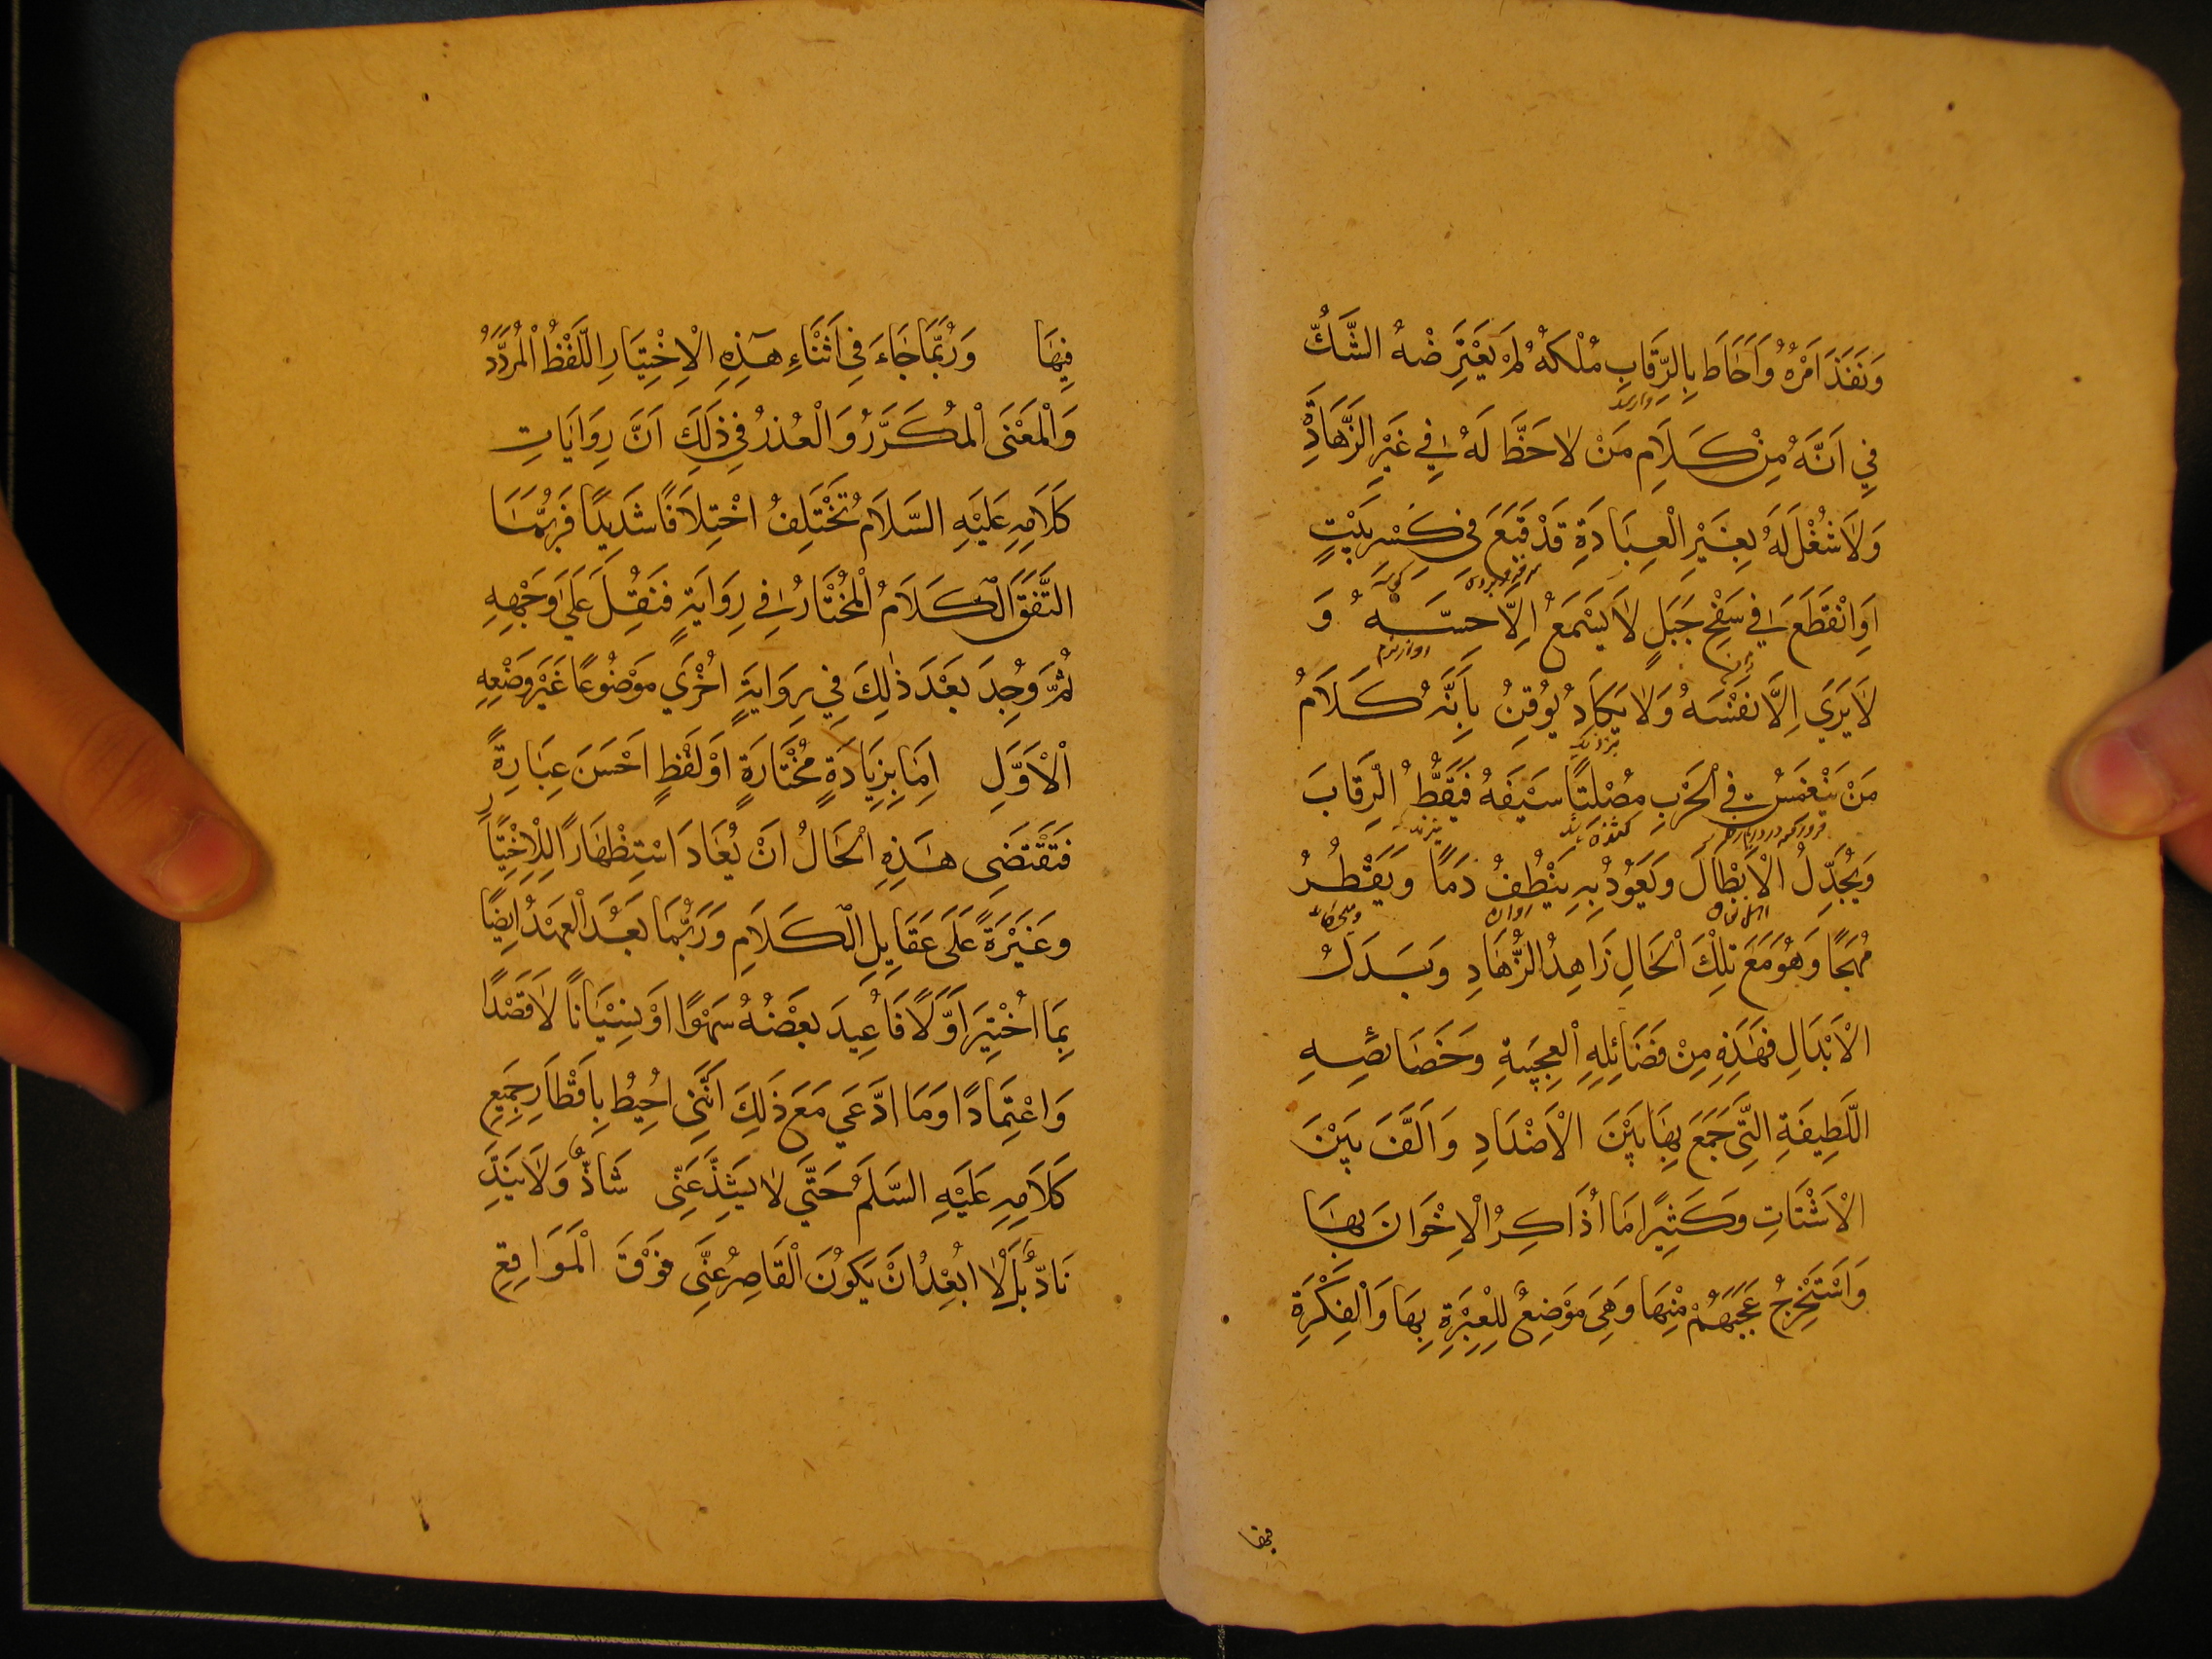 وَنَفَذَ اَمْرُهُ وَاَحَاطَ بِالرِّقَابِ مُلْكَهُ لَمْ يَعْتَرِضْهُ الشَّكُّ
فِي اَنَّهُ مِنْ كَلَامِ مَنْ لَا حَظَّ لَهُ فِي غَيْرِ الزَّهَادَةِ
وَلَا شُغْلَ لَهُ بِغَيْرِ الْعِبَادَةِ قَدْ قَبَعَ فِي كَسْرِ بَيْتٍ
اَوِ انْقَطَعَ فِي سَفْحِ جَبَلٍ لَا يَسْمَعُ اِلَّا حِسَّهُ وَ
لَا يَرَي اِلَّا نَفْسَهُ وَلَا يَكَادُ يُوقِنُ بِاَنَّهُ كَلَامُ
مَنْ يَنْغَمِسُ فِي الْحَرْبِ مُصْلِتًا سَيْفَهُ فَيَقُطُّ الرِّقَابَ
وَيُجَدِّلُ الْاَبْطَالَ وَيَعُودُ بِهِ يَنْطُفُ دَمًا وَيَقْطُرُ
مُهَجًا وَهُوَ مَعَ تِلْكَ الْحَالِ زَاهِدُ الزُّهَادِ وَبَدَلُ
الْاَبْدَالِ فَهَذِهِ مِنْ فَضَائِلِهِ الْعَجِيبَةِ وَخَصَائِصِهِ
اللَّطِيفَةِ الَّتِي جَمَعَ بِهَا بَيْنَ الْاَضْدَادِ وَاَلَّفَ بَيْنَ
الْاَشْتَاتِ وَكَثِيرًا مَا اُذَاكِرُ الْاِخْوَانَ بِهَا
وَاَسْتَخْرِجُ عَجَبَهُمْ مِنْهَا وَهِيَ مَوْضِعٌ لِلْعِبْرَةِ بِهَا وَالْفِكْرَةِ
فيها
فِيهَا وَرُبَّمَا جَاءَ فِي اَثْنَاءِ هَذِهِ الْاِخْتِيَارِ اللَّفْظُ الْمُرَدَّدُ
وَالْمَعْنَى الْمُكَرَّرُ وَالْعُذرُ فِي ذَلِكَ اَنَّ رِوَايَاتِ
كَلَامِهِ عَلَيْهِ السَّلَامُ تَخْتَلِفُ اخْتِلَافًا شَدِيدًا فَرُبَّمَا
اتَّفَقَ الْكَلَامُ الْمُخْتَارُ فِي رِوَايَةٍ فَنُقِلَ عَلَي وَجْهِهِ
ثُمَّ وُجِدَ بَعْدَ ذٰلِكَ فِي رِوَايَةٍ اُخْرَي مَوْضُوعًا غَيْرَ وَضْعِهِ
الْاَوَّلِ اِمَا بِزِيَادَةٍ مُخْتَارَةٍ اَوْ لَفْظٍ اَحْسَنَ عِبَارَةً
فَتَقْتَضِي هَذِهِ الْحَالُ اَنْ يُعَادَ اسْتِظْهَارًا لِلْاِخْتِيَارِ
وَغَيْرَةً عَلَى عَقَايِلِ الْكَلَامِ وَرُبَّمَا بَعُدَ الْعَهْدُ اَيضًا
بِمَا اخْتِيرَ اَوَّلًا فَاُعِيدَ بَعْضُهُ سَهْوًا اَوْ نِسْيَانًا لَا قَصْدًا
وَاعْتِمَادًا وَمَا ادَّعَي مَعَ ذَلِكَ اَنَّنِي اُحِيطُ بِاَقْطَارِ جَمِيعِ
كَلَامِهِ عَلَيْهِ السَّلَمُ حَتَّي لَا يَشِذَّ عَنِّي شَاذٌّ وَلَا يَنِدَّ
نَادٌّ بَلْ لَا اُبْعِدُ اَنْ يَكُونَ الْقَاصِرُ عَنِّي فَوْقَ الْمَوَاقِعِ